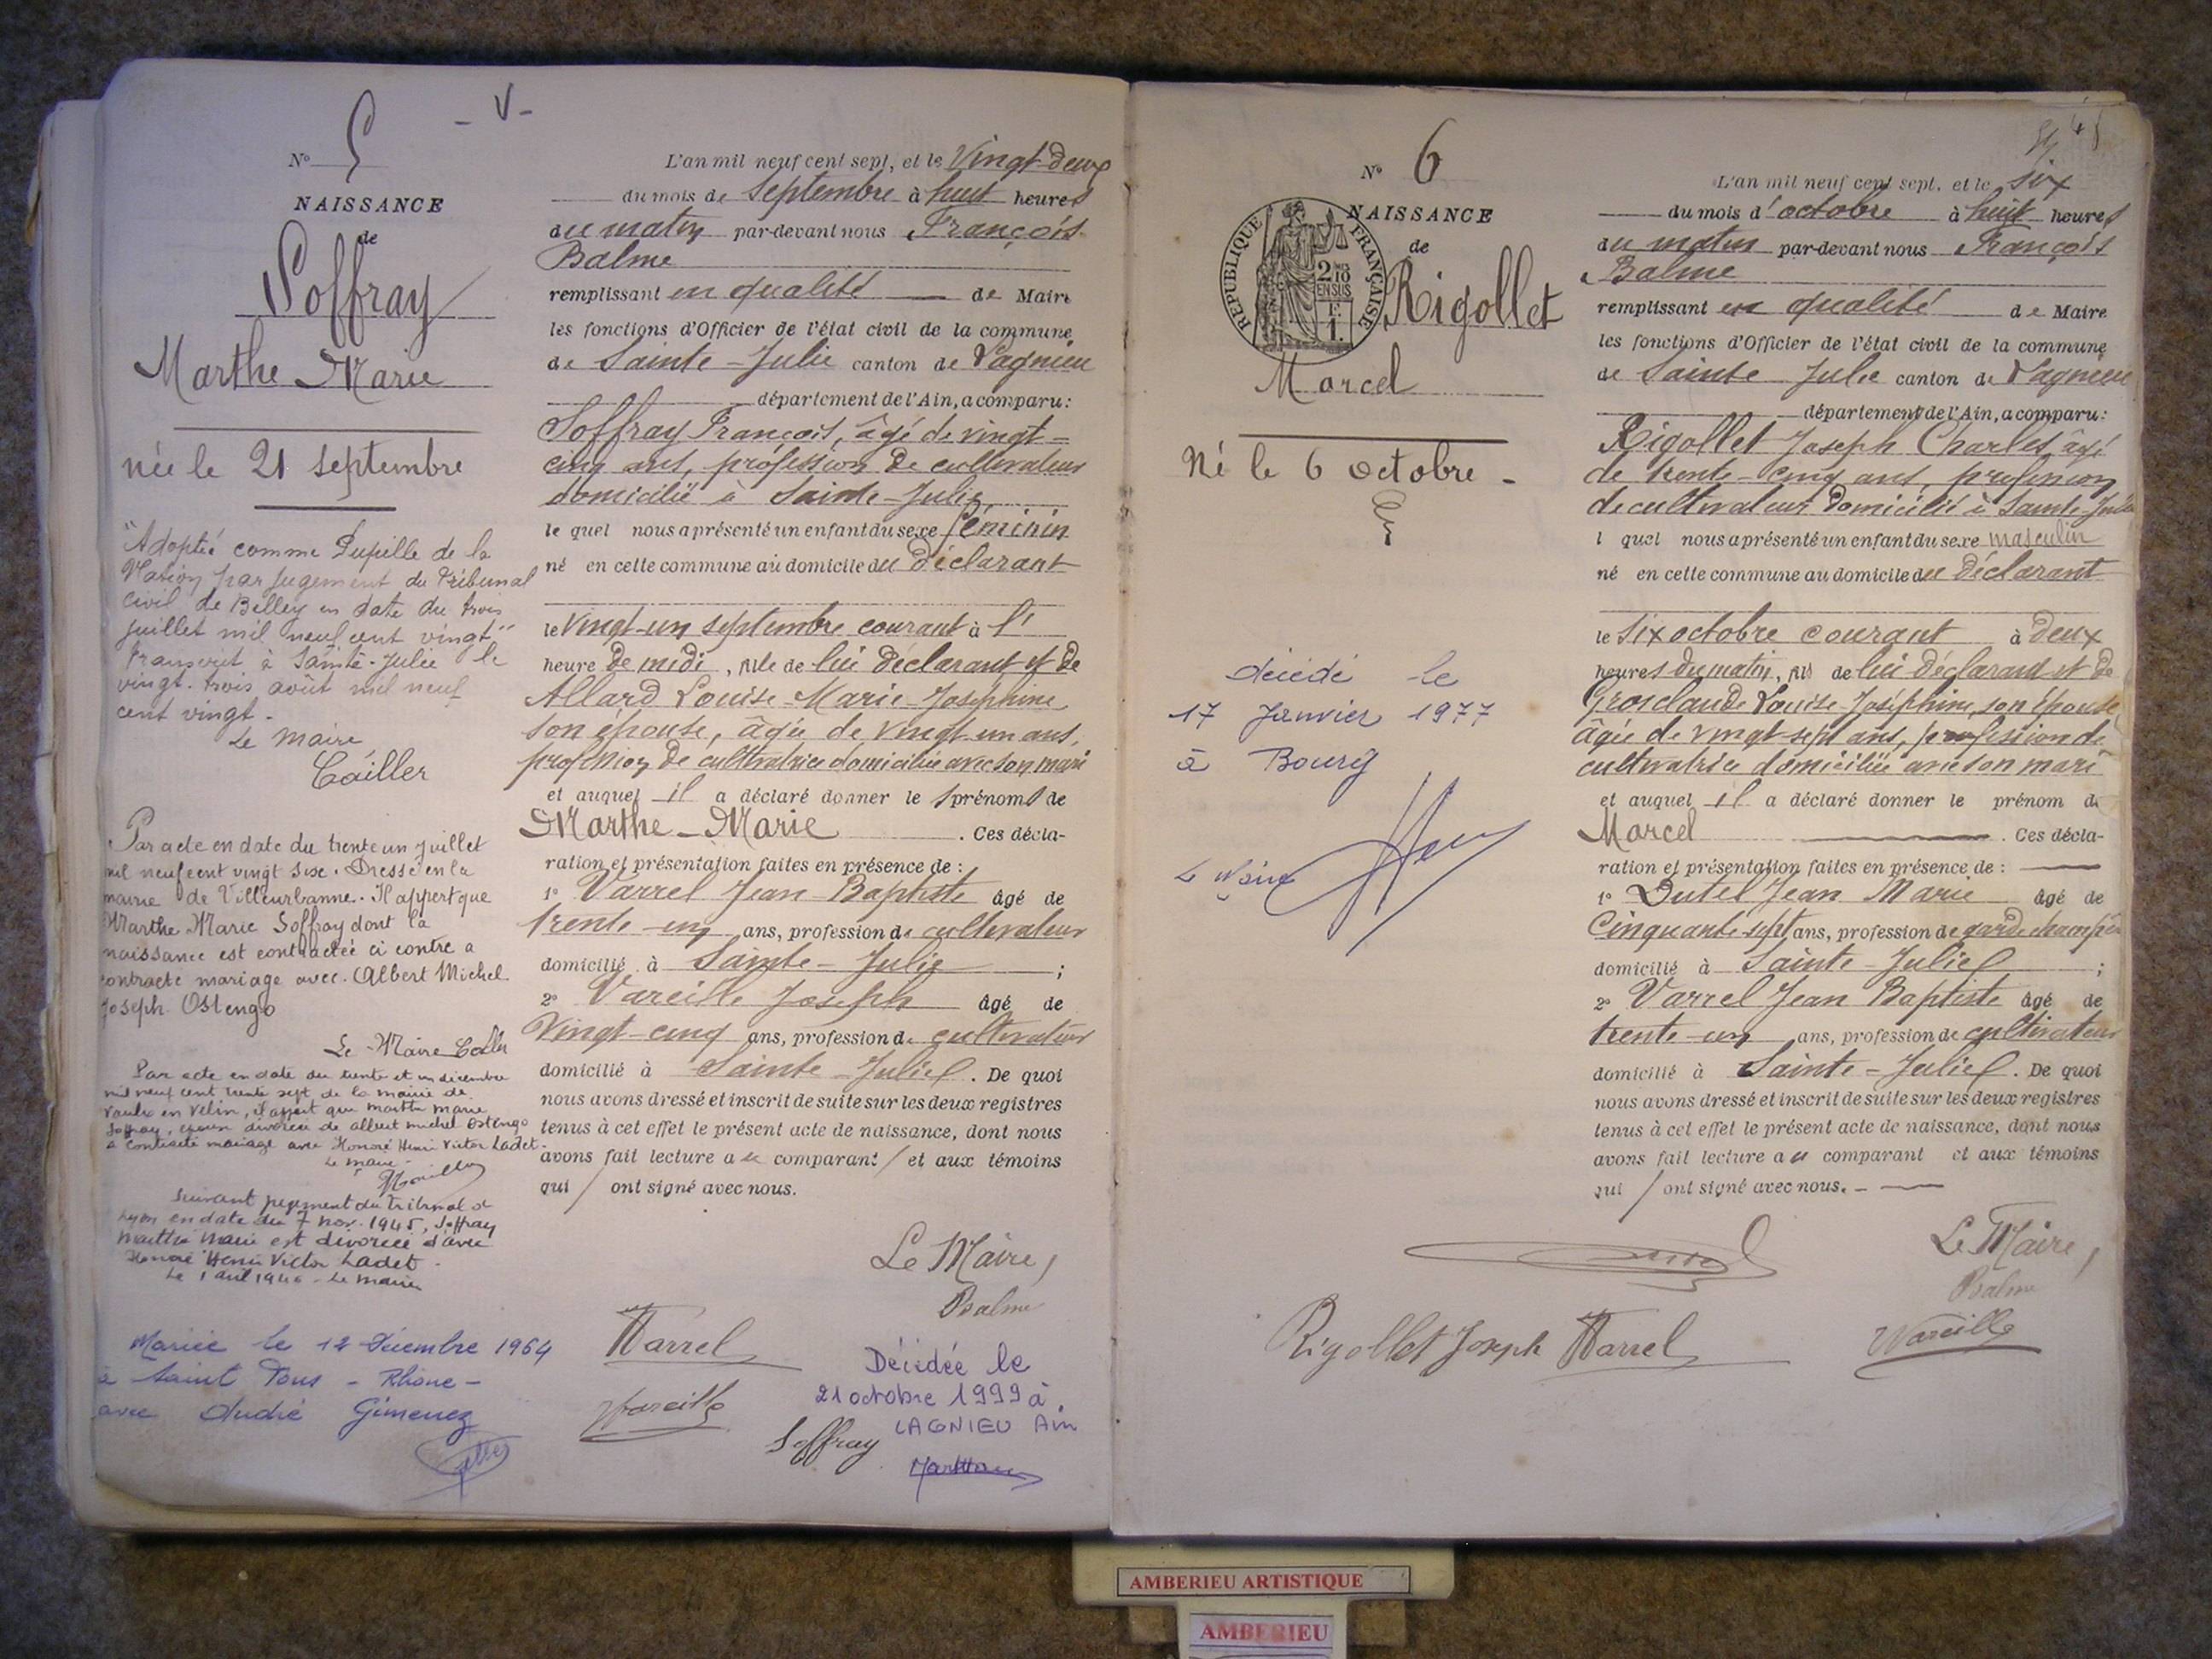 - V -
N° 5
NAISSANCE
de
Soffray
Marthe Marie
née le 21 septembre
"Adoptée comme Pupille de la
Nation par jugement du Tribunal
civil de Belley en date du trois
juillet mil neuf cent vingt"
transcrit à Sainte-Julie le
vingt-trois août mil neuf
cent vingt.
Le Maire
Cailler
Par acte en date du trente un juillet
mil neuf cent vingt six. Dressé en la
mairie de Villeurbanne. Il appert que
Marthe Marie Soffray dont la
naissance est contractée ci contre a
contracté mariage avec. Albert Michel
Joseph Ostengo
Le Maire
Par acte en date du trente et un décembre
mil neuf cent trente sept de la mairie de
Vaulx en Velin, il appert que Marthe Marie
Soffray, épouse divorcée de Albert Michel Ostengo
a contracté mariage avec Honoré Henri Victor Ladet.
Le maire
Suivant jugement du Tribunal de
Lyon en date du 7 nov. 1945, Soffray
Marthe Marie est divorcée d'avec
Honoré Henri Victor Ladet.
Le maire
Mariée le 12 Décembre 1964
à Saint Fons - Rhône -
avec André Gimenez
L'an mil neuf cent sept, et le Vingt-deux
du mois de Septembre à huit heures
du matin par-devant nous François
Balme
remplissant en qualité de Maire
les fonctions d'Officier de l'état civil de la commune
de Sainte-Julie canton de Lagnieu
département de l'Ain, a comparu:
Soffray François, âgé de vingt-
cinq ans, profession de cultivateur
domicilié à Sainte-Julie
le quel nous a présenté un enfant du sexe féminin
né en cette commune au domicile du Déclarant
le Vingt-un septembre courant à l'
heure de midi, fille de lui Déclarant et de
Allard Louise-Marie-Josephine
son épouse, âgée de vingt-un ans,
profession de cultivatrice domiciliée avec son mari
et auquel il a déclaré donner le s prénom s de
Marthe-Marie. Ces décla-
ration et présentation faites en présence de :
1° Varrel Jean-Baptiste âgé de
trente-un ans, profession de cultivateur
domicilié à Sainte-Julie ;
2° Vareille Joseph âgé de
Vingt-cinq ans, profession de cultivateur
domicilié à Sainte-Julie. De quoi
nous avons dressé et inscrit de suite sur les deux registres
tenus à cet effet le présent acte de naissance, dont nous
avons fait lecture au comparant / et aux témoins
qui / ont signé avec nous.
Le Maire,
Balme
Varrel
Vareille
Soffray
Décédée le
21 octobre 1999 à
LAGNIEU Ain
N° 6
NAISSANCE
de
REPUBLIQUE FRANÇAISE
2/10 EN SUS
1F.
Rigollet
Marcel
Né le 6 octobre -
décédé le
17 Janvier 1977
à Bourg
Le Maire
L'an mil neuf cent sept, et le six
du mois d'octobre à huit heures
du matin par-devant nous François
Balme
remplissant en qualité de Maire
les fonctions d'Officier de l'état civil de la commune
de Sainte Julie canton de Lagnieu
département de l'Ain, a comparu:
Rigollet Joseph Charles, âgé
de trente-cinq ans, profession
de cultivateur domicilié à Sainte-Julie
l quel nous a présenté un enfant du sexe masculin
né en cette commune au domicile du Déclarant
le six octobre courant à deux
heures du matin, fils de lui Déclarant et de
Grosclaude Louise-Joséphine, son épouse
âgée de vingt-sept ans, profession de
cultivatrice domiciliée avec son mari
et auquel il a déclaré donner le prénom de
Marcel. Ces décla-
ration et présentation faites en présence de :
1° Dutel Jean Marie âgé de
Cinquante-sept ans, profession de garde champêtre
domicilié à Sainte-Julie ;
2° Varrel Jean Baptiste âgé de
trente-un ans, profession de cultivateur
domicilié à Sainte-Julie. De quoi
nous avons dressé et inscrit de suite sur les deux registres
tenus à cet effet le présent acte de naissance, dont nous
avons fait lecture au comparant et aux témoins
qui / ont signé avec nous. -
Le Maire,
Balme
Rigollet Joseph Varrel
Vareille
AMBERIEU ARTISTIQUE
AMBERIEU